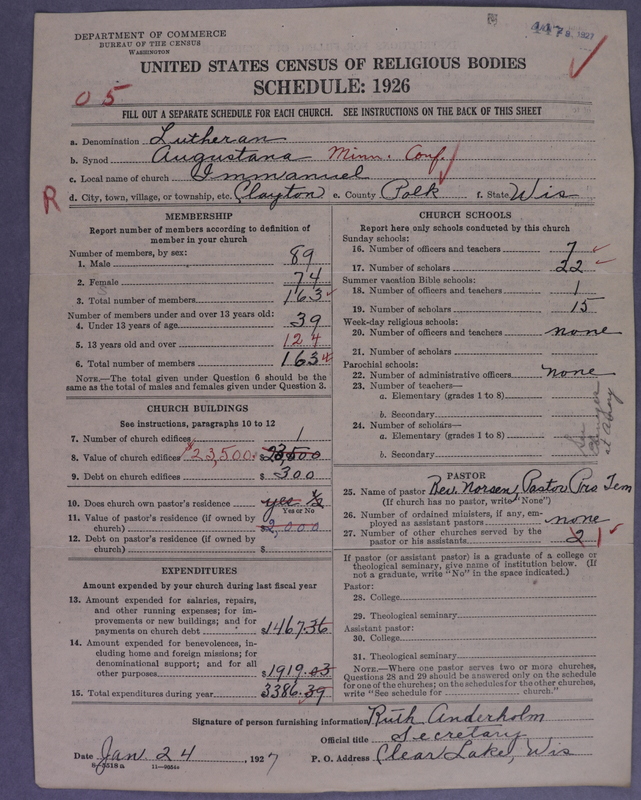 DEPARTMENT OF COMMERCE
BUREAU OF THE CENSUS
WASHINGTON
1927
UNITED STATES CENSUS OF RELIGIOUS BODIES
SCHEDULE: 1926
05
FILL OUT A SEPARATE SCHEDULE FOR EACH CHURCH. SEE INSTRUCTIONS ON THE BACK OF THIS SHEET
a. Denomination Lutheran
b. Synod Augustana Minn. Conf.
c. Local name of church Immanuel
R d. City, town, village, or township, etc. Clayton e. County Polk f. State Wis
MEMBERSHIP
Report number of members according to definition of
member in your church
Number of members, by sex:
1. Male 89
2. Female 74
3. Total number of members 163
Number of members under and over 13 years old:
4. Under 13 years of age 39
5. 13 years old and over 124
6. Total number of members 163
NOTE.—The total given under Question 6 should be the
same as the total of males and females given under Question 3.
CHURCH BUILDINGS
See instructions, paragraphs 10 to 12
7. Number of church edifices 1
8. Value of church edifices $23,500. $ 23,500
9. Debt on church edifices 300
10. Does church own pastor's residence yes ½
Yes or No
11. Value of pastor's residence (if owned by
church) $2,000
12. Debt on pastor's residence (if owned by
church) $
EXPENDITURES
Amount expended by your church during last fiscal year
13. Amount expended for salaries, repairs,
and other running expenses; for im-
provements or new buildings; and for
payments on church debt $1467.36
14. Amount expended for benevolences, in-
cluding home and foreign missions; for
denominational support; and for all
other purposes $1919.03
15. Total expenditures during year 3386.39
CHURCH SCHOOLS
Report here only schools conducted by this church
Sunday schools:
16. Number of officers and teachers 7
17. Number of scholars 22
Summer vacation Bible schools:
18. Number of officers and teachers 1
19. Number of scholars 15
Week-day religious schools:
20. Number of officers and teachers none
21. Number of scholars
Parochial schools:
22. Number of administrative officers none
23. Number of teachers—
a. Elementary (grades 1 to 8)
b. Secondary
24. Number of scholars—
a. Elementary (grades 1 to 8)
b. Secondary
PASTOR
25. Name of pastor Rev. Norsen, Pastor Pro Tem
(If church has no pastor, write "None")
26. Number of ordained ministers, if any, em-
ployed as assistant pastors none
27. Number of other churches served by the
pastor or his assistants 2 1
If pastor (or assistant pastor) is a graduate of a college or
theological seminary, give name of institution below. (If
not a graduate, write "No" in the space indicated.)
Pastor:
28. College
29. Theological seminary
Assistant pastor:
30. College
31. Theological seminary
NOTE.—Where one pastor serves two or more churches,
Questions 28 and 29 should be answered only on the schedule
for one of the churches; on the schedules for the other churches,
write "See schedule for church."
Signature of person furnishing information Ruth Anderholm
Official title Secretary
Date Jan 24, 1927 P. O. Address Clear Lake, Wis
8-5518a 11-9054